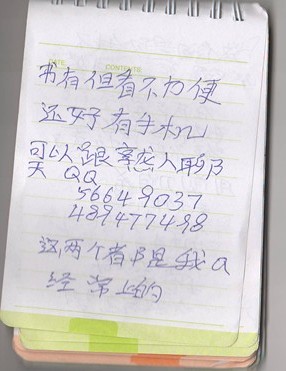 DATE.
CONTENTS:
书有但看不方便
还好有手机
可以跟亲恋人聊
天 QQ
56649037
489477498
这两个都是我a
经常上的